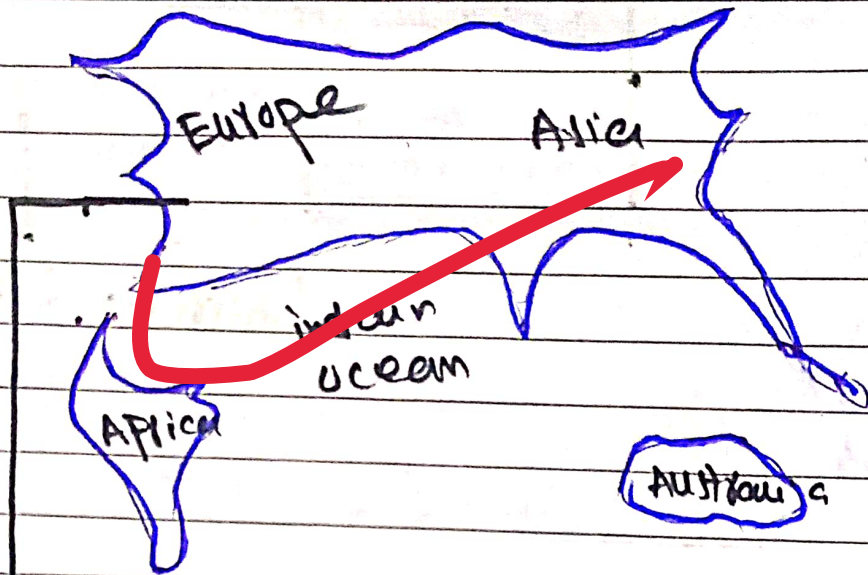 Europe
Asia
indian
ocean
Africa
Australia